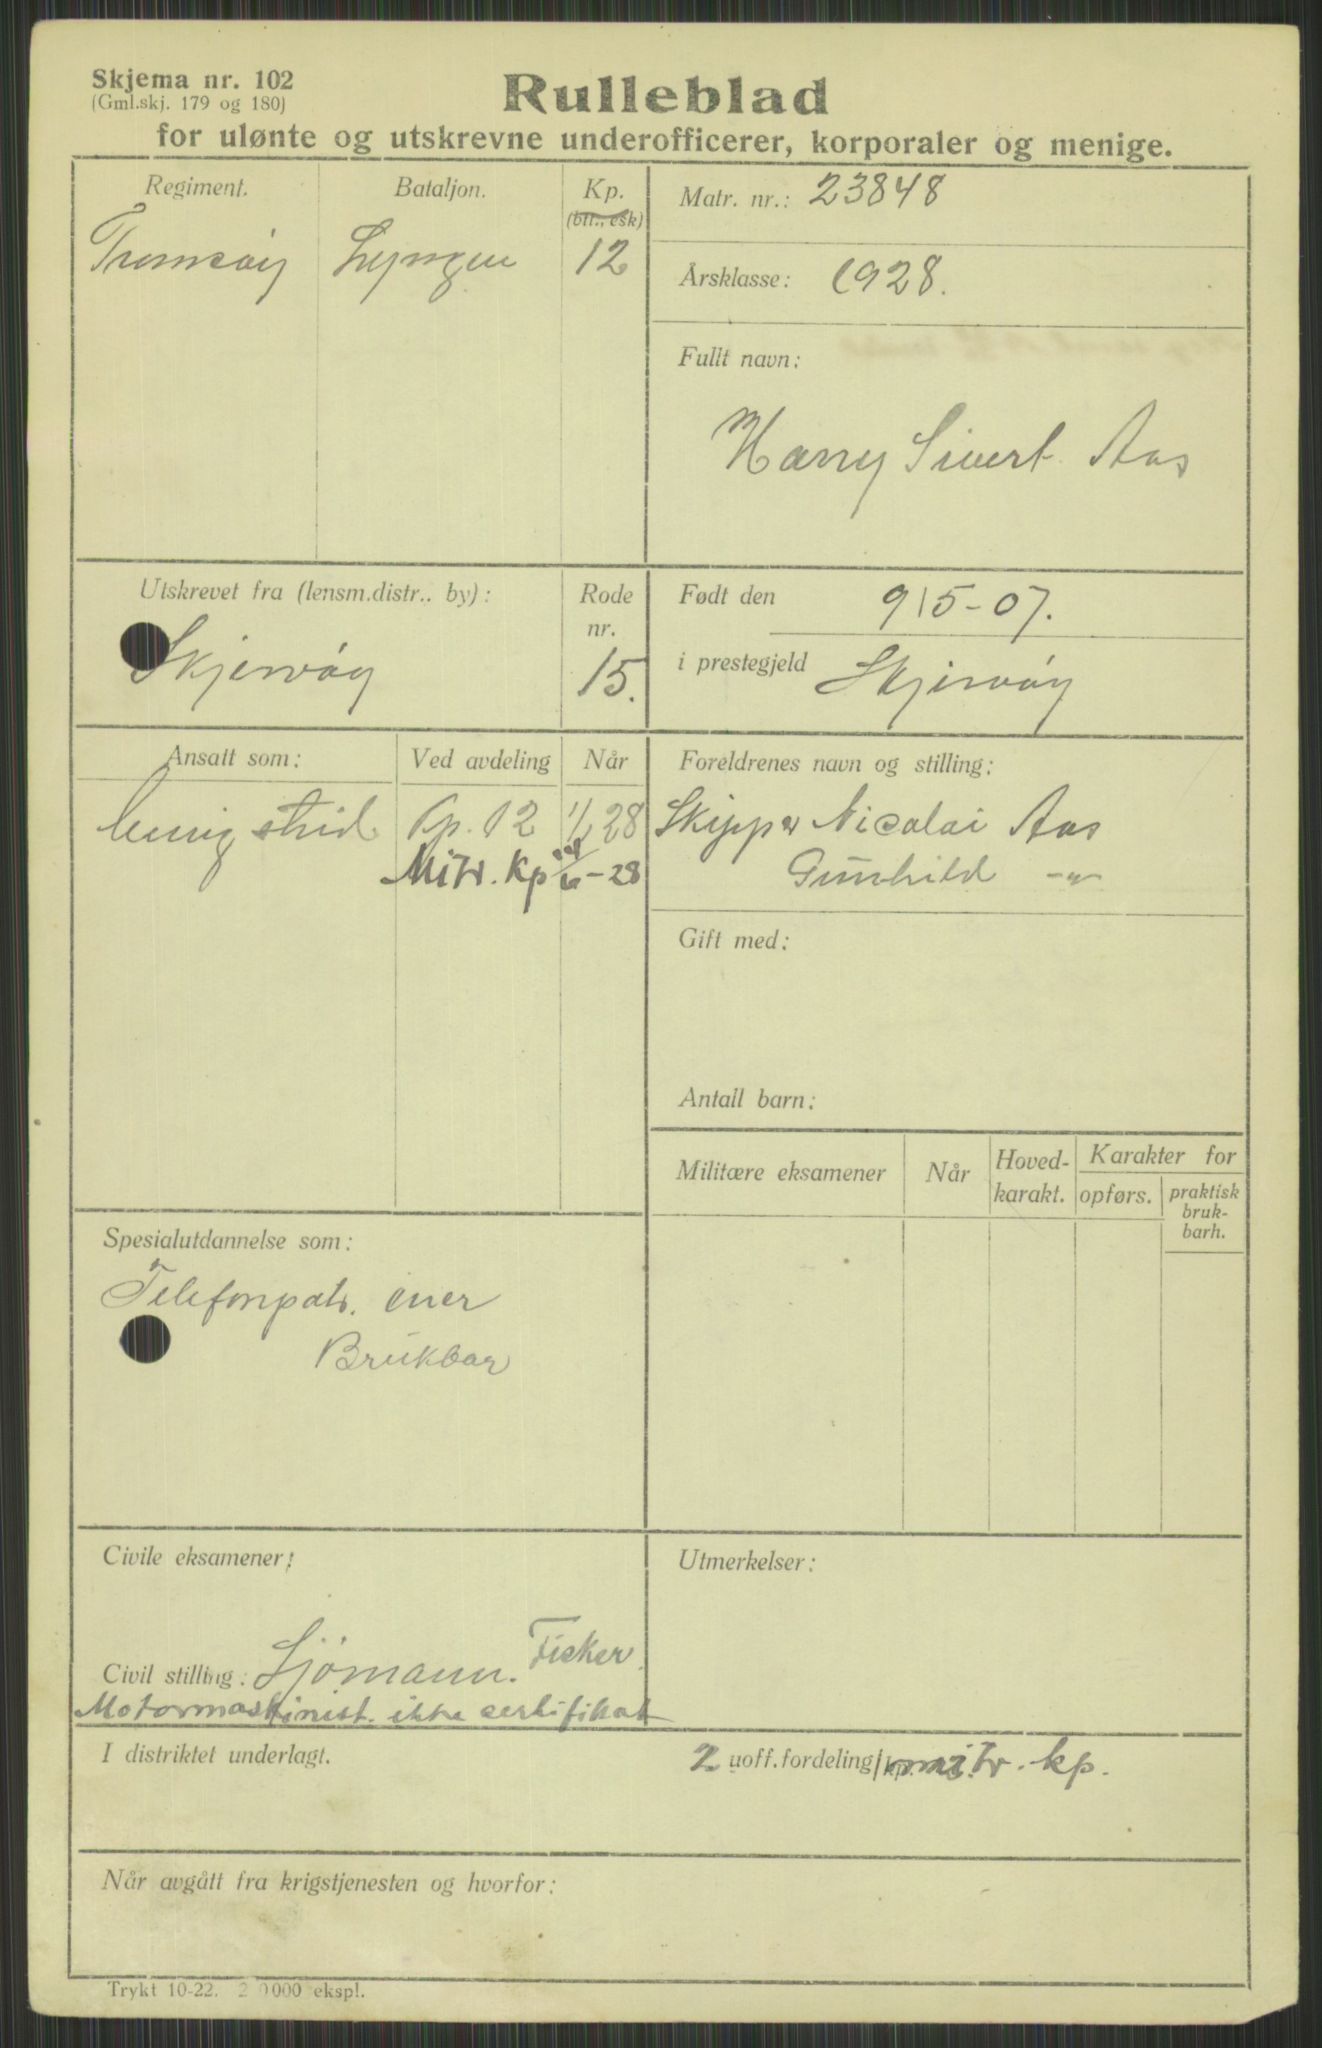 Skjema nr. 102
(Gml.skj. 179 og 180)
Rulleblad
for ulønte og utskrevne underofficerer, korporaler og menige.
Regiment.
Tromsöy
Bataljon.
Lyngen
Kp.
(btr., esk)
12
Matr. nr.: 23848
Årsklasse: 1928.
Fullt navn:
Harry Sivert Aas
Utskrevet fra (lensm.distr.. by):
Skjervöy
Rode
nr.
15.
Født den 9/5-07.
i prestegjeld Skjervöy
Ansatt som:
Ved avdeling
Når
menig strid. Kp. 12 1/1 28
Mitr. kp 6-28
Foreldrenes navn og stilling:
Skipper Nicolai Aas
Gunhild -"-
Gift med:
Antall barn:
Militære eksamener
Når
Hoved-
karakt.
Karakter for
opførs.
praktisk
bruk-
barh.
Spesialutdannelse som:
Telefonpatr. ener
Brukbar
Civile eksamener:
Civil stilling: Sjömann. Fisker.
Motormaskinist. ikke sertifikat
Utmerkelser:
I distriktet underlagt.
2 uoff.fordeling/kp. mitr. kp.
Når avgått fra krigstjenesten og hvorfor:
Trykt 10-22. 2 0000 ekspl.